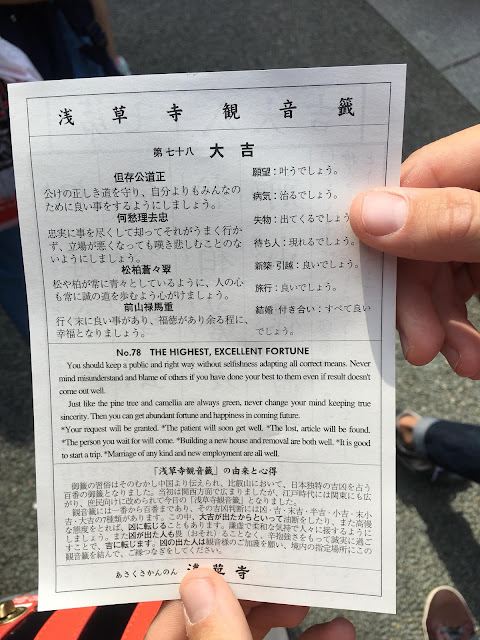 浅草寺観音籤
第七十八 大吉
但存公道正
公けの正しき道を守り、自分よりもみんなの
ために良い事をするようにしましょう。
何愁理去忠
忠実に事を尽くして却ってそれがうまく行か
ず、立場が悪くなっても嘆き悲しむことのな
いようにしましょう。
松柏蒼々翠
松や柏が常に青々としているように、人の心
も常に誠の道を歩むよう心がけましょう。
前山禄馬重
行く末に良い事があり、福徳があり余る程に、
幸福となりましょう。
願望：叶うでしょう。
病気：治るでしょう。
失物：出てくるでしょう
待ち人：現れるでしょう。
新築・引越：良いでしょう。
旅行：良いでしょう。
結婚・付き合い：すべて良い
でしょう。
No.78 THE HIGHEST, EXCELLENT FORTUNE
You should keep a public and right way without selfishness adapting all correct means. Never
mind misunderstand and blame of others if you have done your best to them even if result doesn't
come out well.
Just like the pine tree and camellia are always green, never change your mind keeping true
sincerity. Then you can get abundant fortune and happiness in coming future.
*Your request will be granted. *The patient will soon get well. *The lost, article will be found.
*The person you wait for will come. *Building a new house and removal are both well. *It is good
to start a trip. *Marriage of any kind and new employment are all well.
「浅草寺観音籤」の由来と心得
御籤の習俗はそのむかし中国より伝えられ、比叡山において、日本独特の吉凶を占う
百番の御籤となりました。当初は関西方面で広まりましたが、江戸時代には関東にも広
がり、庶民向けに改められて今日の「浅草寺観音籤」となりました。
観音籤には一番から百番まであり、その吉凶判断には凶・吉・末吉・半吉・小吉・末小
吉・大吉の7種類があります。この中、大吉が出たからといって油断をしたり、また高慢
な態度をとれば、凶に転じることもあります。謙虚で柔和な気持で人々に接するようにし
ましょう。また凶が出た人も畏（おそれ）ることなく、辛抱強さをもって誠実に過ご
すことで、吉に転じます。凶の出た人は観音様のご加護を願い、境内の指定場所にこの
観音籤を結んで、ご縁つなぎをしてください。
あさくさかんのん 浅草寺